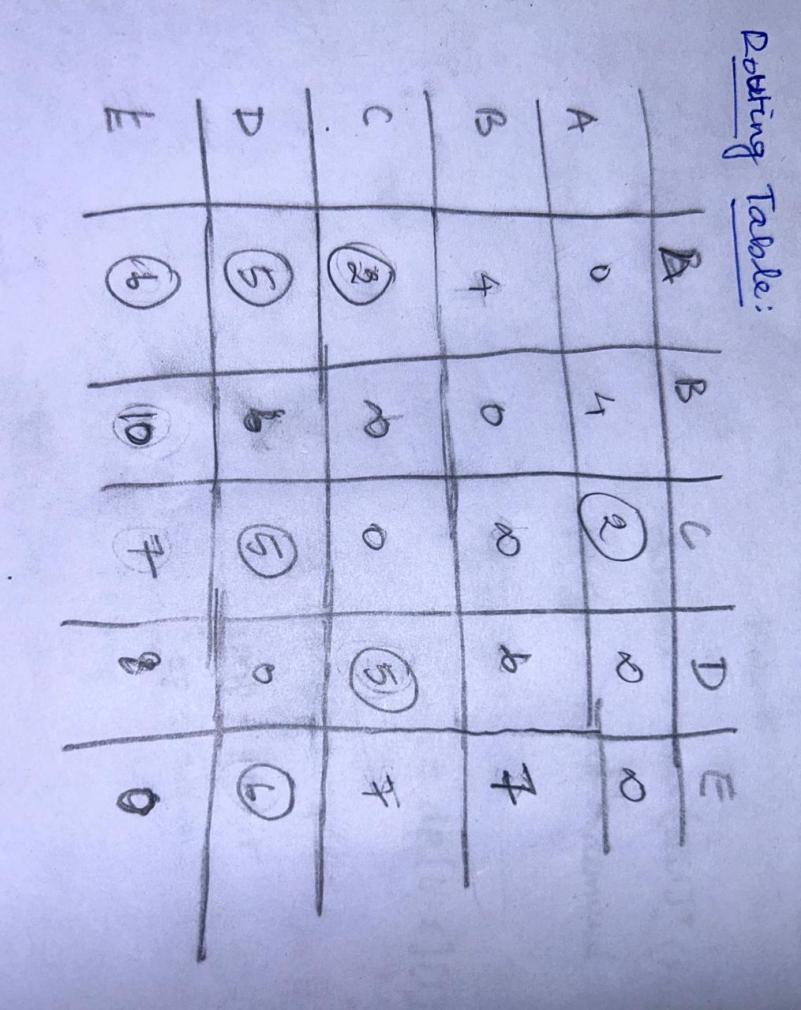 Routing Table:
A B C D E
A 0 4 2 ∞ ∞
B 4 0 ∞ 6 7
C 2 ∞ 0 5 7
D 5 6 5 0 6
E 10 7 8 0